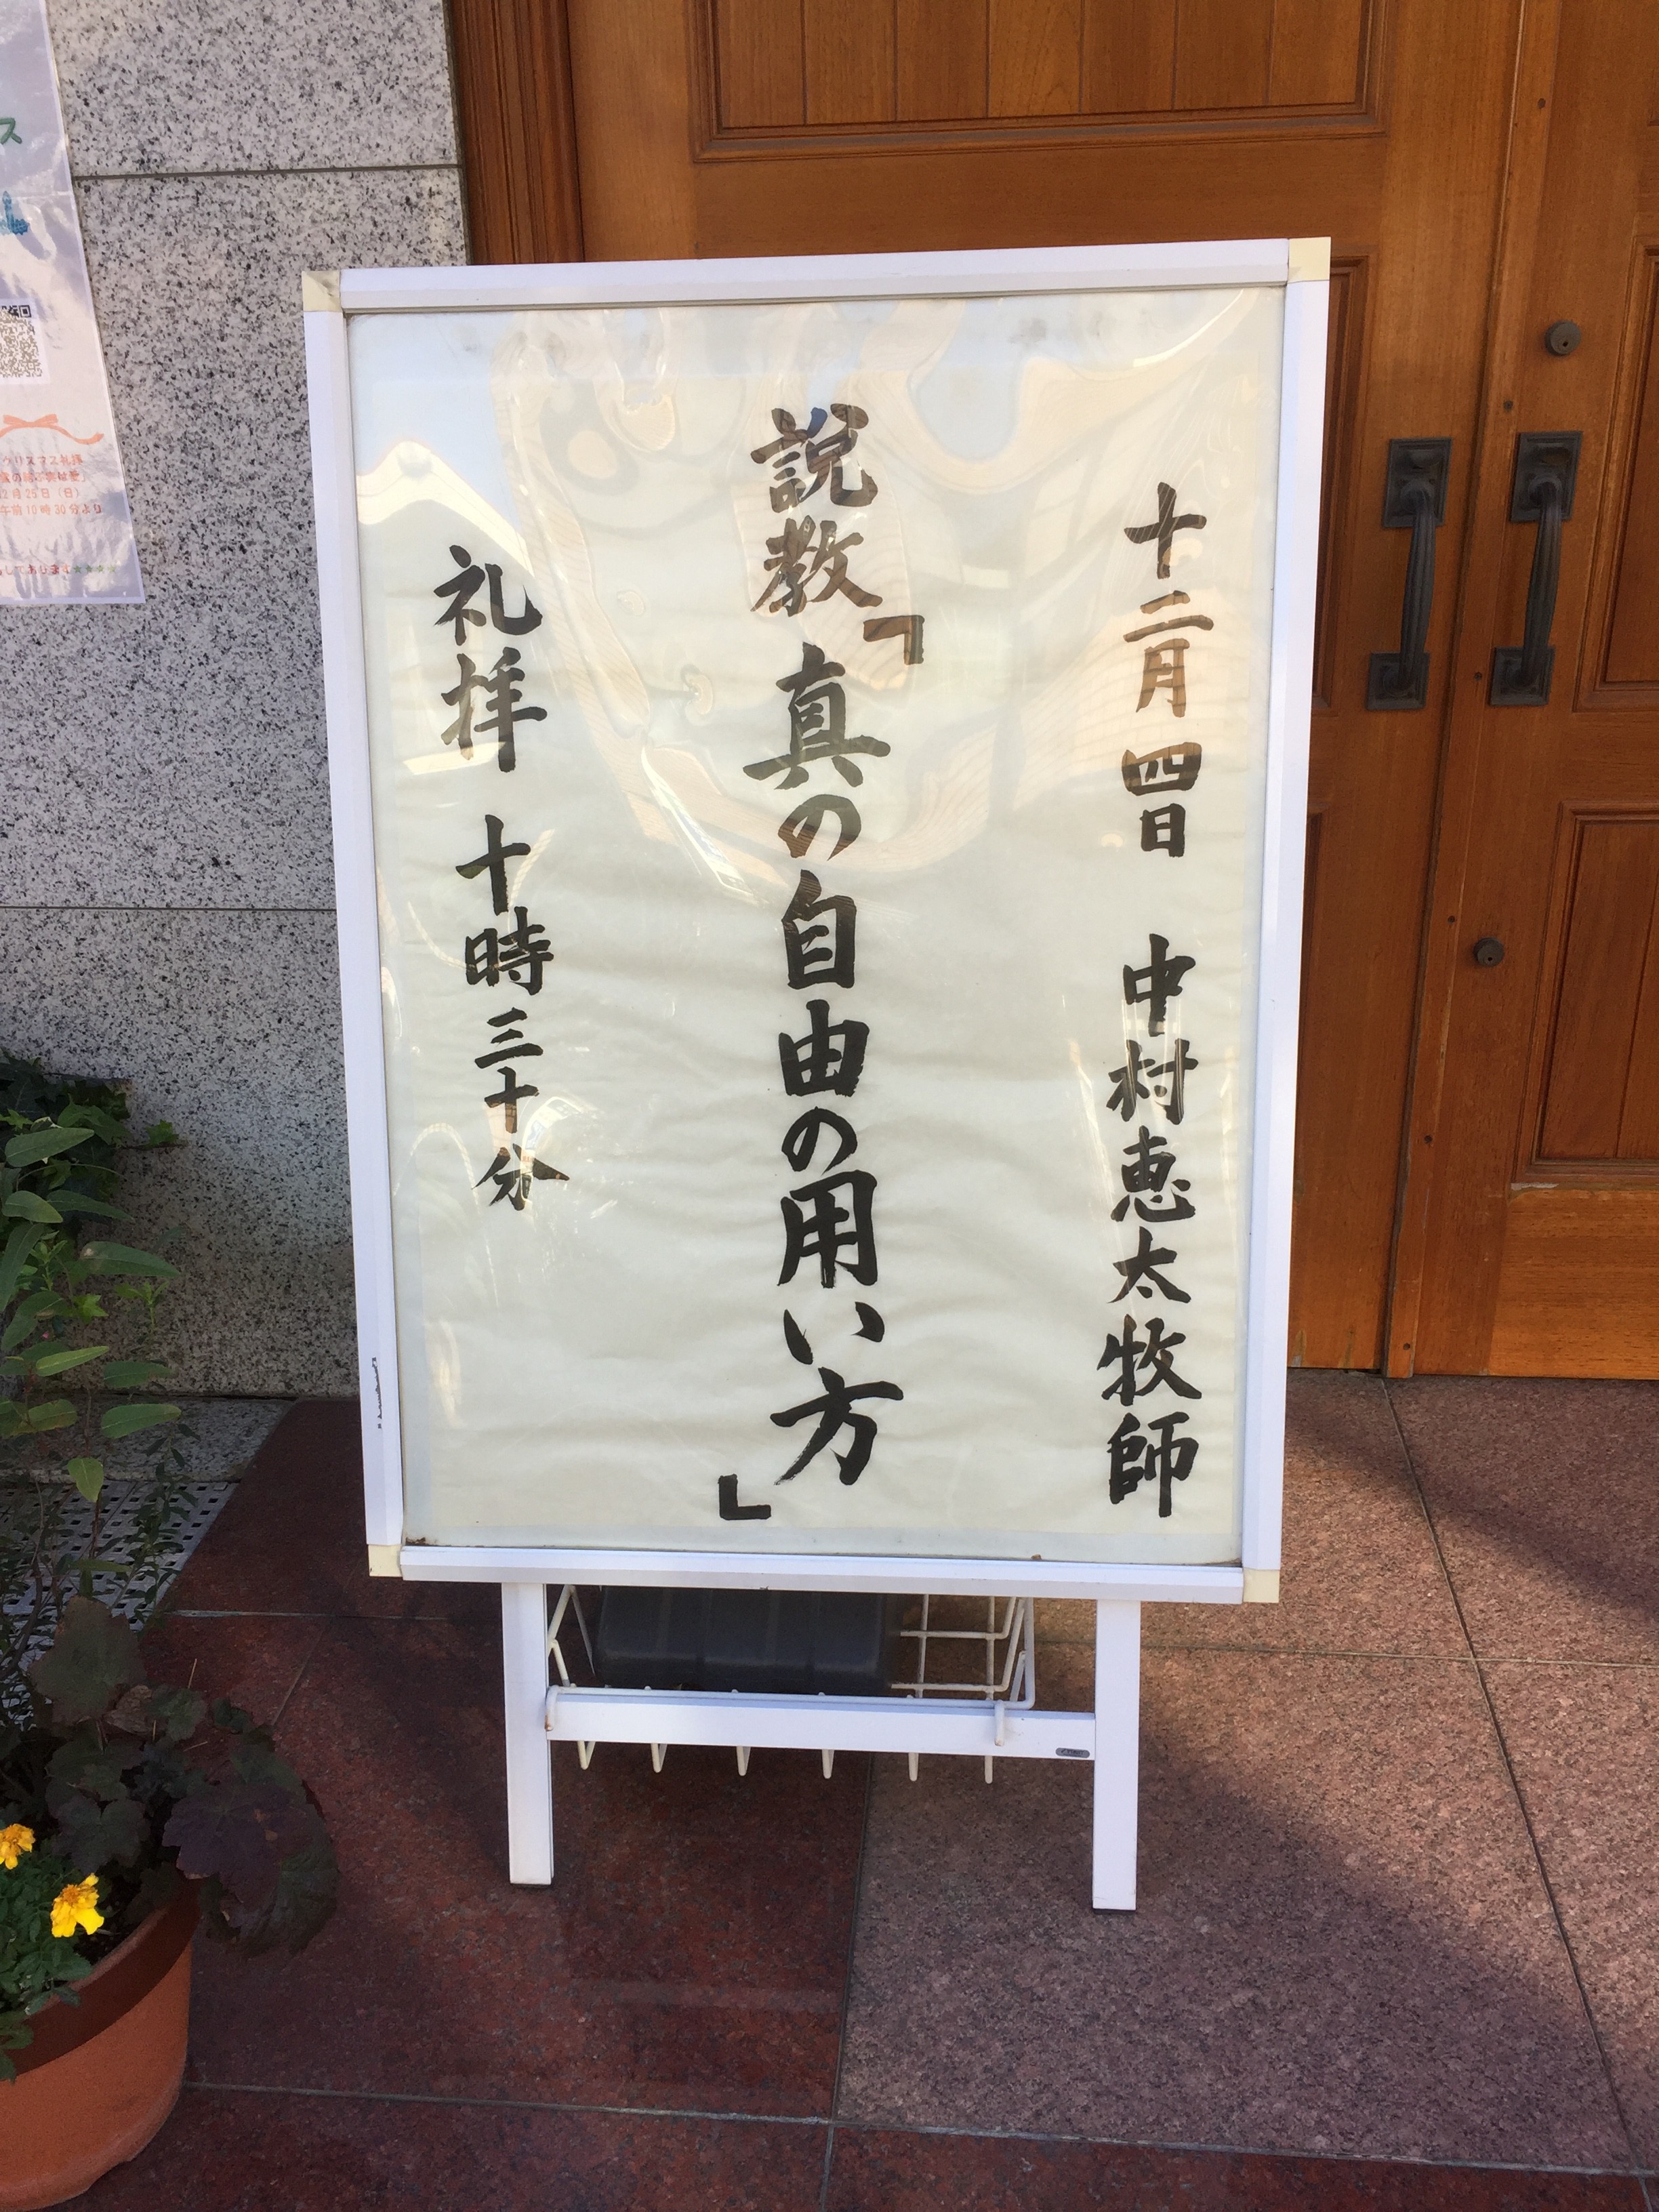 十二月四日 中村恵太牧師
説教「真の自由の用い方」
礼拝 十時三十分
ス
クリスマス礼拝
2月25日(日)
午前10時30分より
してあります☆☆☆☆